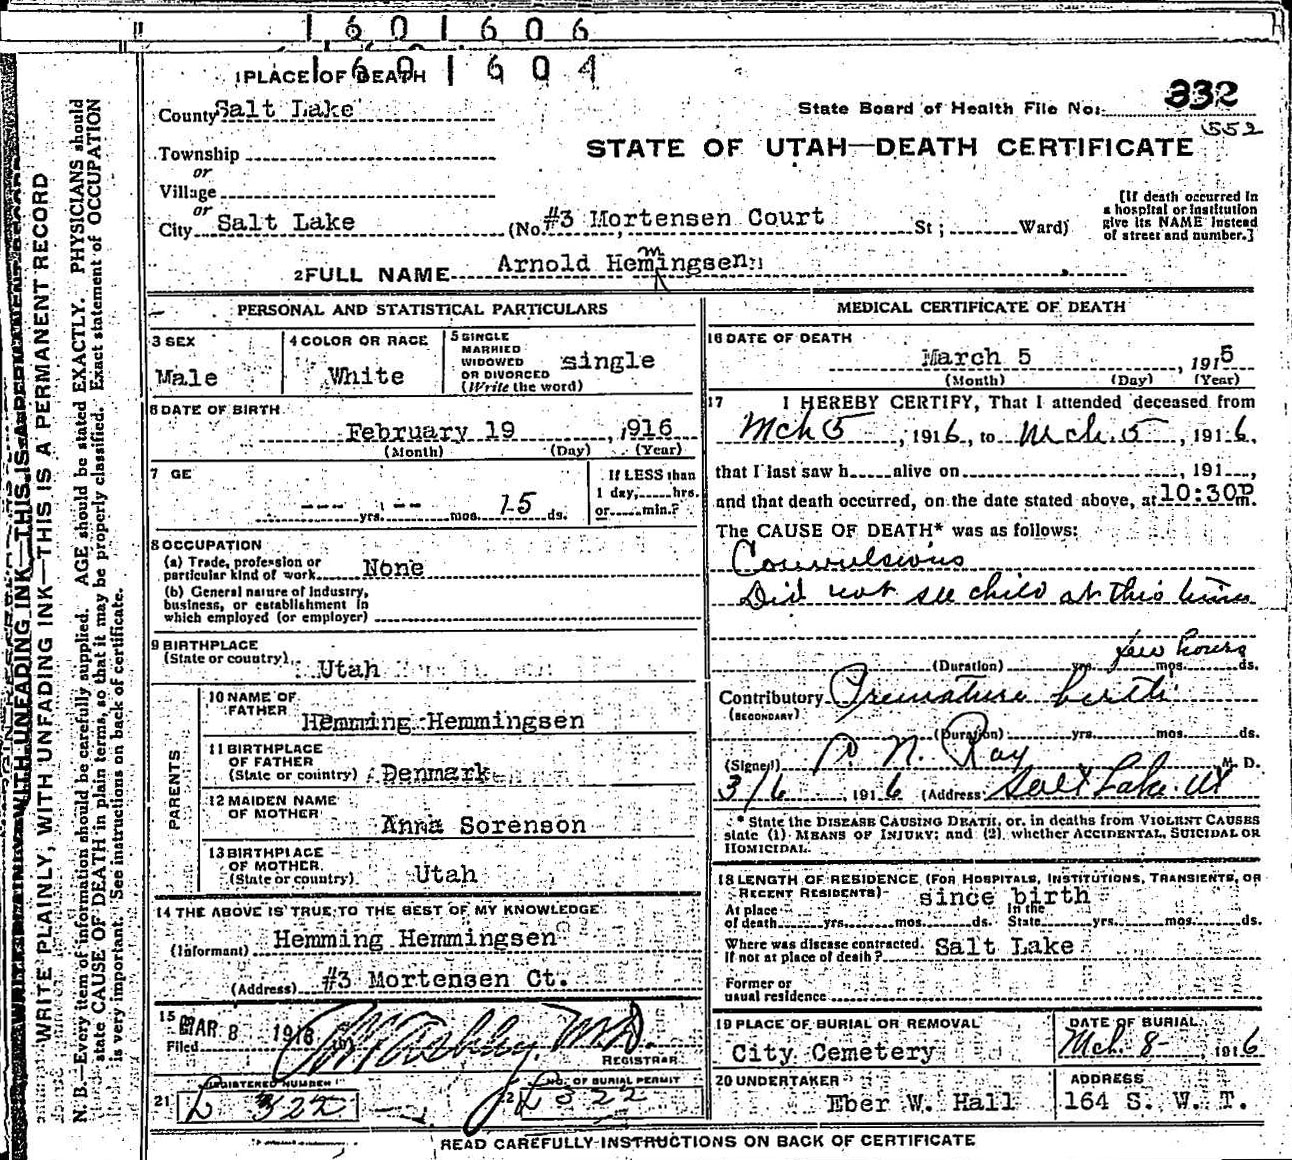 1601606
1601604
1 PLACE OF DEATH
County Salt Lake
State Board of Health File No. 332
552
Township
or
Village
or
City Salt Lake (No. #3 Mortensen Court St; Ward)
STATE OF UTAH—DEATH CERTIFICATE
[If death occurred in
a hospital or institution
give its NAME instead
of street and number.]
m
2 FULL NAME Arnold Hemingsen
PERSONAL AND STATISTICAL PARTICULARS
3 SEX
Male
4 COLOR OR RACE
White
5 SINGLE
MARRIED
WIDOWED
OR DIVORCED
(Write the word)
single
6 DATE OF BIRTH
February 19, 1916
(Month) (Day) (Year)
7 GE
--- yrs. -- mos. 15 ds.
If LESS than
1 day, hrs.
or min.?
8 OCCUPATION
(a) Trade, profession or
particular kind of work None
(b) General nature of Industry,
business, or establishment in
which employed (or employer)
9 BIRTHPLACE
(State or country) Utah
PARENTS
10 NAME OF
FATHER Hemming Hemmingsen
11 BIRTHPLACE
OF FATHER
(State or country) Denmark
12 MAIDEN NAME
OF MOTHER
Anna Sorenson
13 BIRTHPLACE
OF MOTHER
(State or country) Utah
14 THE ABOVE IS TRUE TO THE BEST OF MY KNOWLEDGE
(Informant) Hemming Hemmingsen
(Address) #3 Mortensen Ct.
15
Filed MAR 8 1916 M.D.
REGISTRAR
REGISTERED NUMBER
21 L 322
NO. OF BURIAL PERMIT
22 L 322
MEDICAL CERTIFICATE OF DEATH
16 DATE OF DEATH
March 5, 1916
(Month) (Day) (Year)
17 I HEREBY CERTIFY, That I attended deceased from
Mch 5, 1916, to Mch. 5, 1916,
that I last saw h alive on , 191 ,
and that death occurred, on the date stated above, at 10:30P m.
The CAUSE OF DEATH* was as follows:
Convulsions
Did not see child at this time
(Duration) yrs. mos. ds. few hours
Contributory Premature birth
(SECONDARY)
(Duration) yrs. mos. ds.
(Signed) P. N. Ray M. D.
3/6, 1916 (Address) Salt Lake Ut
* State the DISEASE CAUSING DEATH, or, in deaths from VIOLENT CAUSES
state (1) MEANS OF INJURY; and (2) whether ACCIDENTAL, SUICIDAL OR
HOMICIDAL.
18 LENGTH OF RESIDENCE (FOR HOSPITALS, INSTITUTIONS, TRANSIENTS, OR
RECENT RESIDENTS) since birth
At place
of death yrs. mos. ds.
In the
State yrs. mos. ds.
Where was disease contracted.
If not at place of death? Salt Lake
Former or
usual residence
19 PLACE OF BURIAL OR REMOVAL
City Cemetery
DATE OF BURIAL
Mch. 8- 1916
20 UNDERTAKER
Eber W. Hall
ADDRESS
164 S. W. T.
READ CAREFULLY INSTRUCTIONS ON BACK OF CERTIFICATE
WRITE PLAINLY, WITH UNFADING INK—THIS IS A PERMANENT RECORD
N. B.—Every item of information should be carefully supplied. AGE should be stated EXACTLY. PHYSICIANS should
state CAUSE OF DEATH in plain terms, so that it may be properly classified. Exact statement of OCCUPATION
is very important. See instructions on back of certificate.